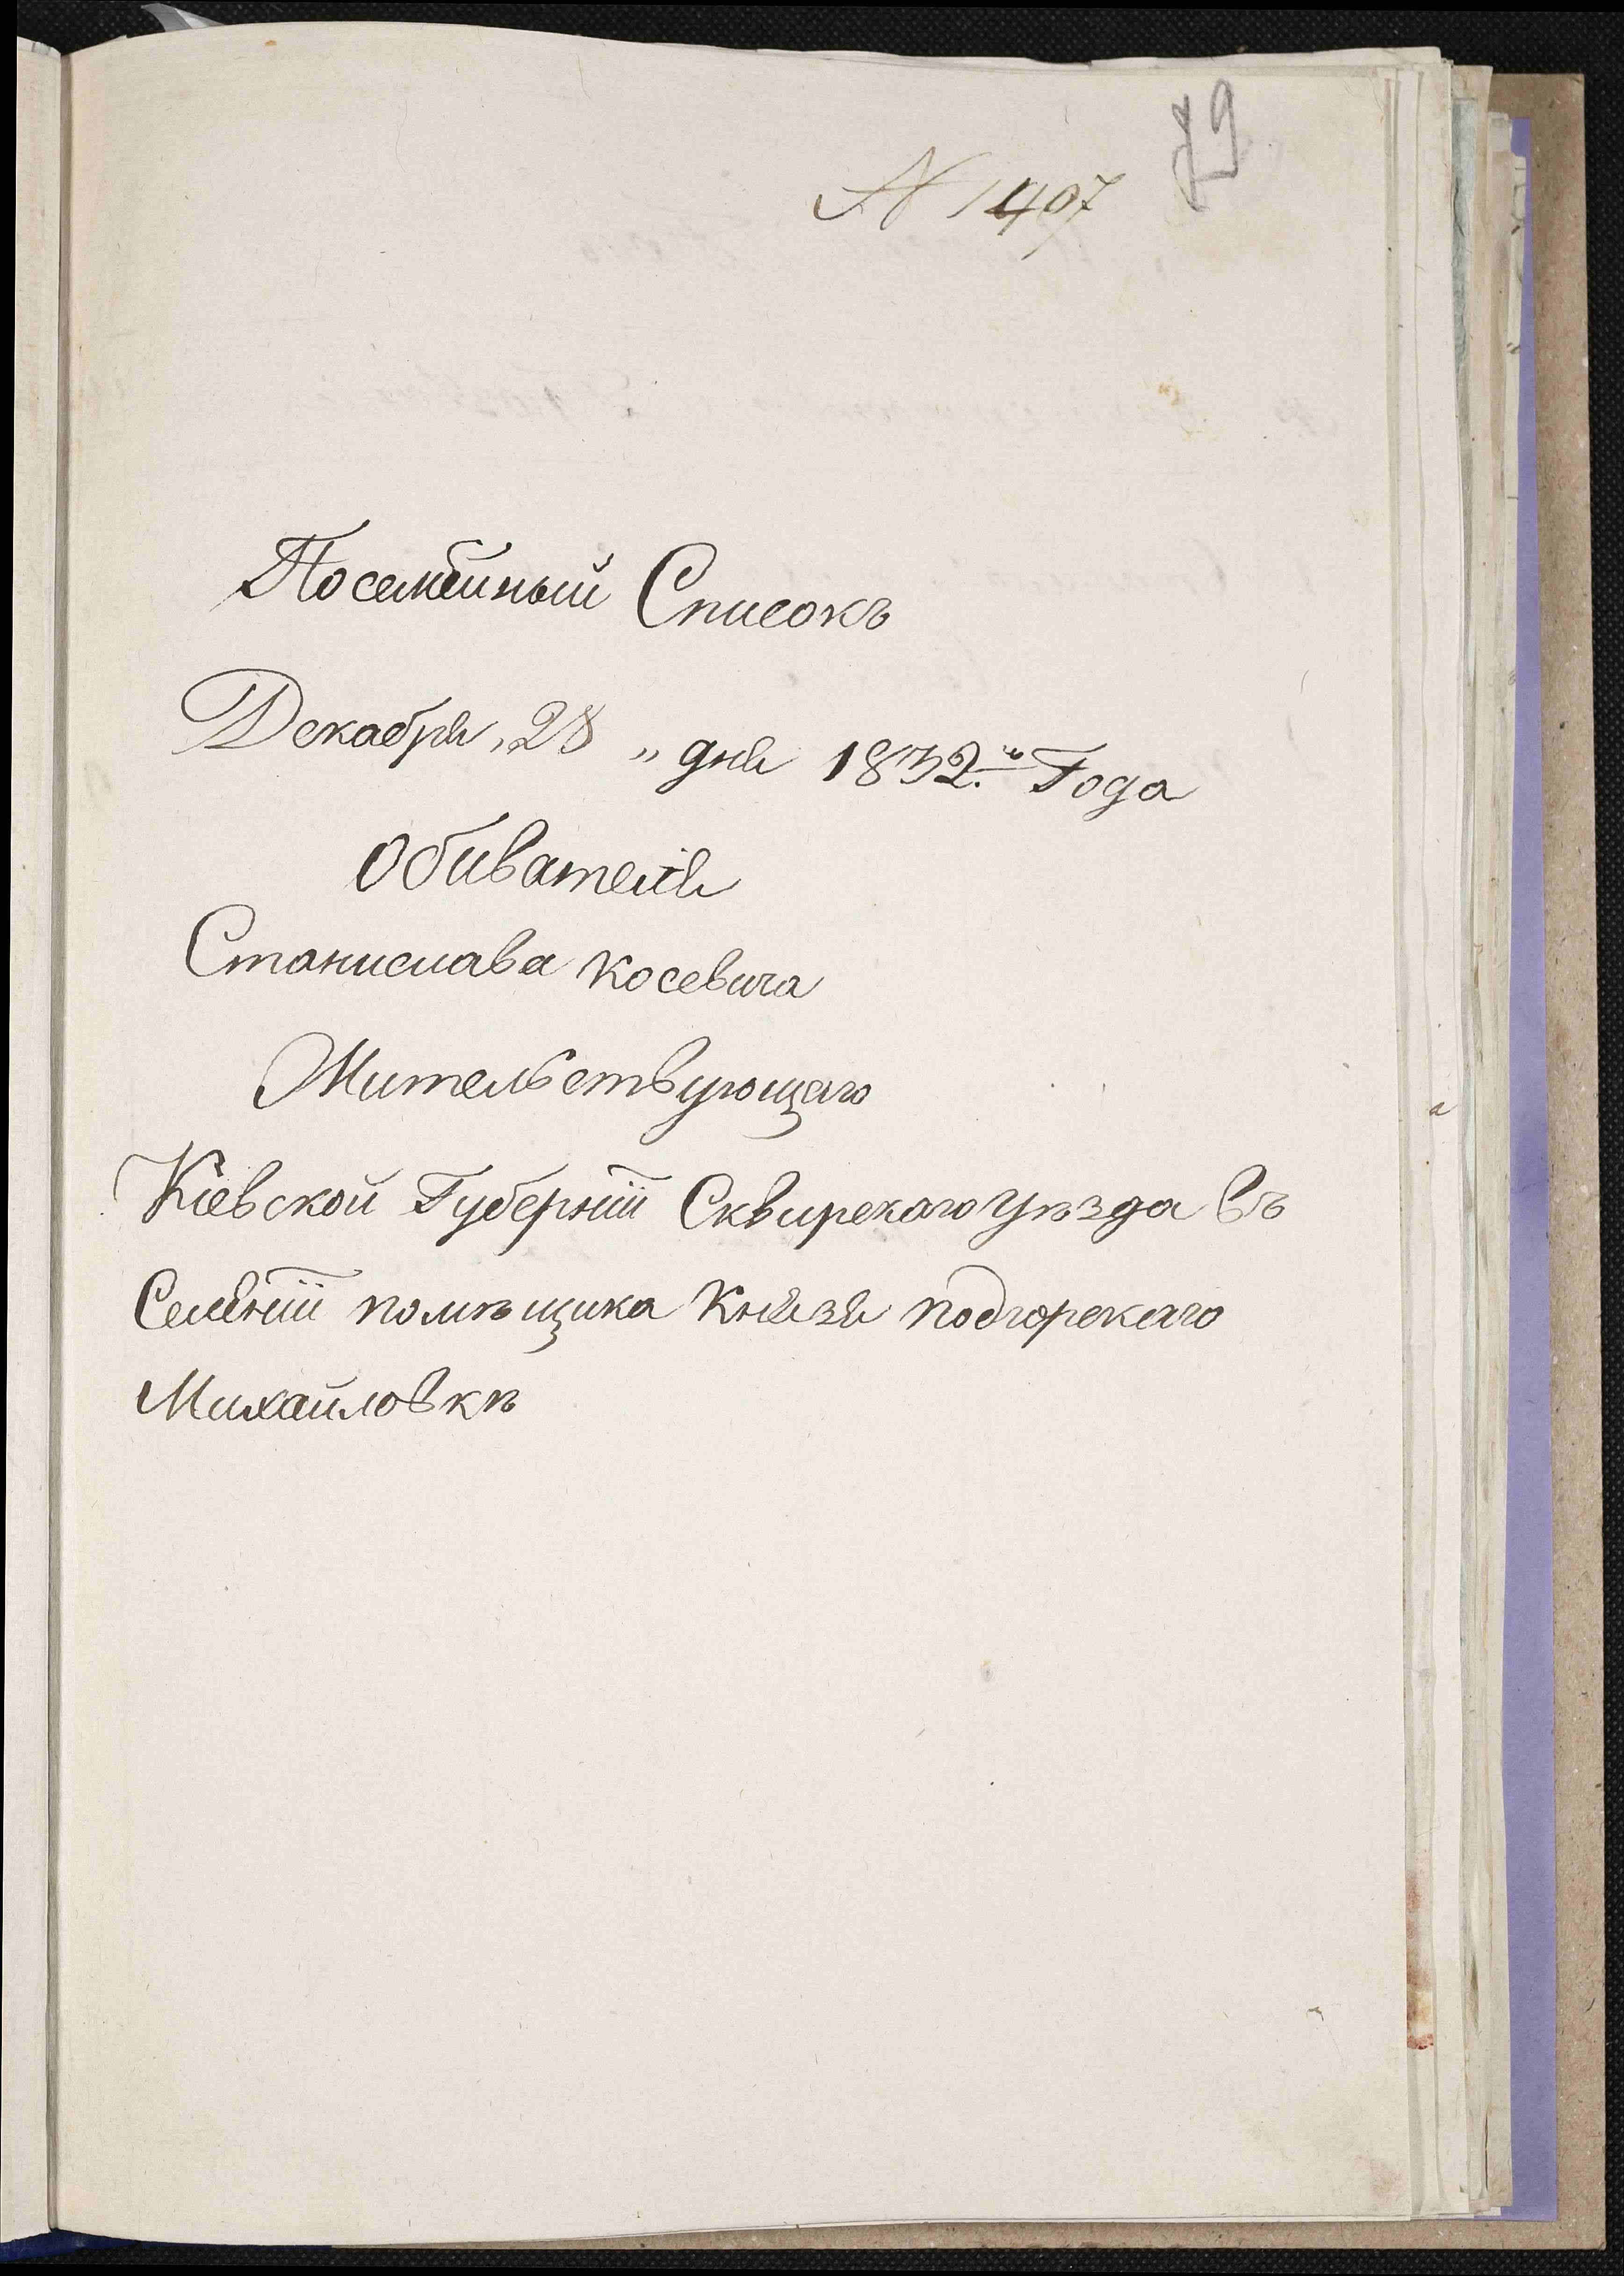 79
N 1407
Посемейный Списокъ
Декабря „ 28 „ дня 1832.го Года
Обивателя
Станислава Косевича
Жительствующаго
Кіевской Губерніи Сквирскаго уѣзда въ
Селеніи помѣщика Князя подгорскаго
Михайловкѣ